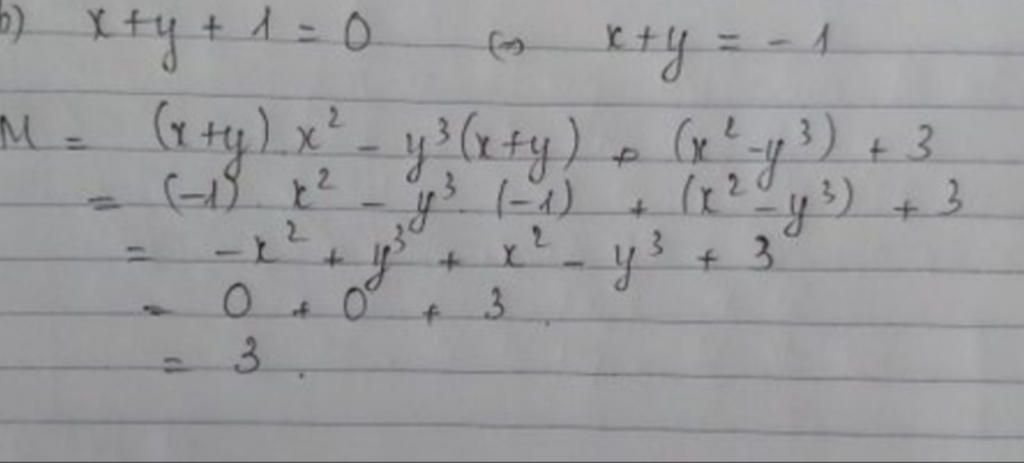 b) x+y + 1 = 0 ⇔ x+y = - 1
M = (x+y) x² - y³(x+y) + (x² - y³) + 3
= (-1) . x² - y³ . (-1) + (x² - y³) + 3
= -x² + y³ + x² - y³ + 3
= 0 + 0 + 3 .
= 3 .